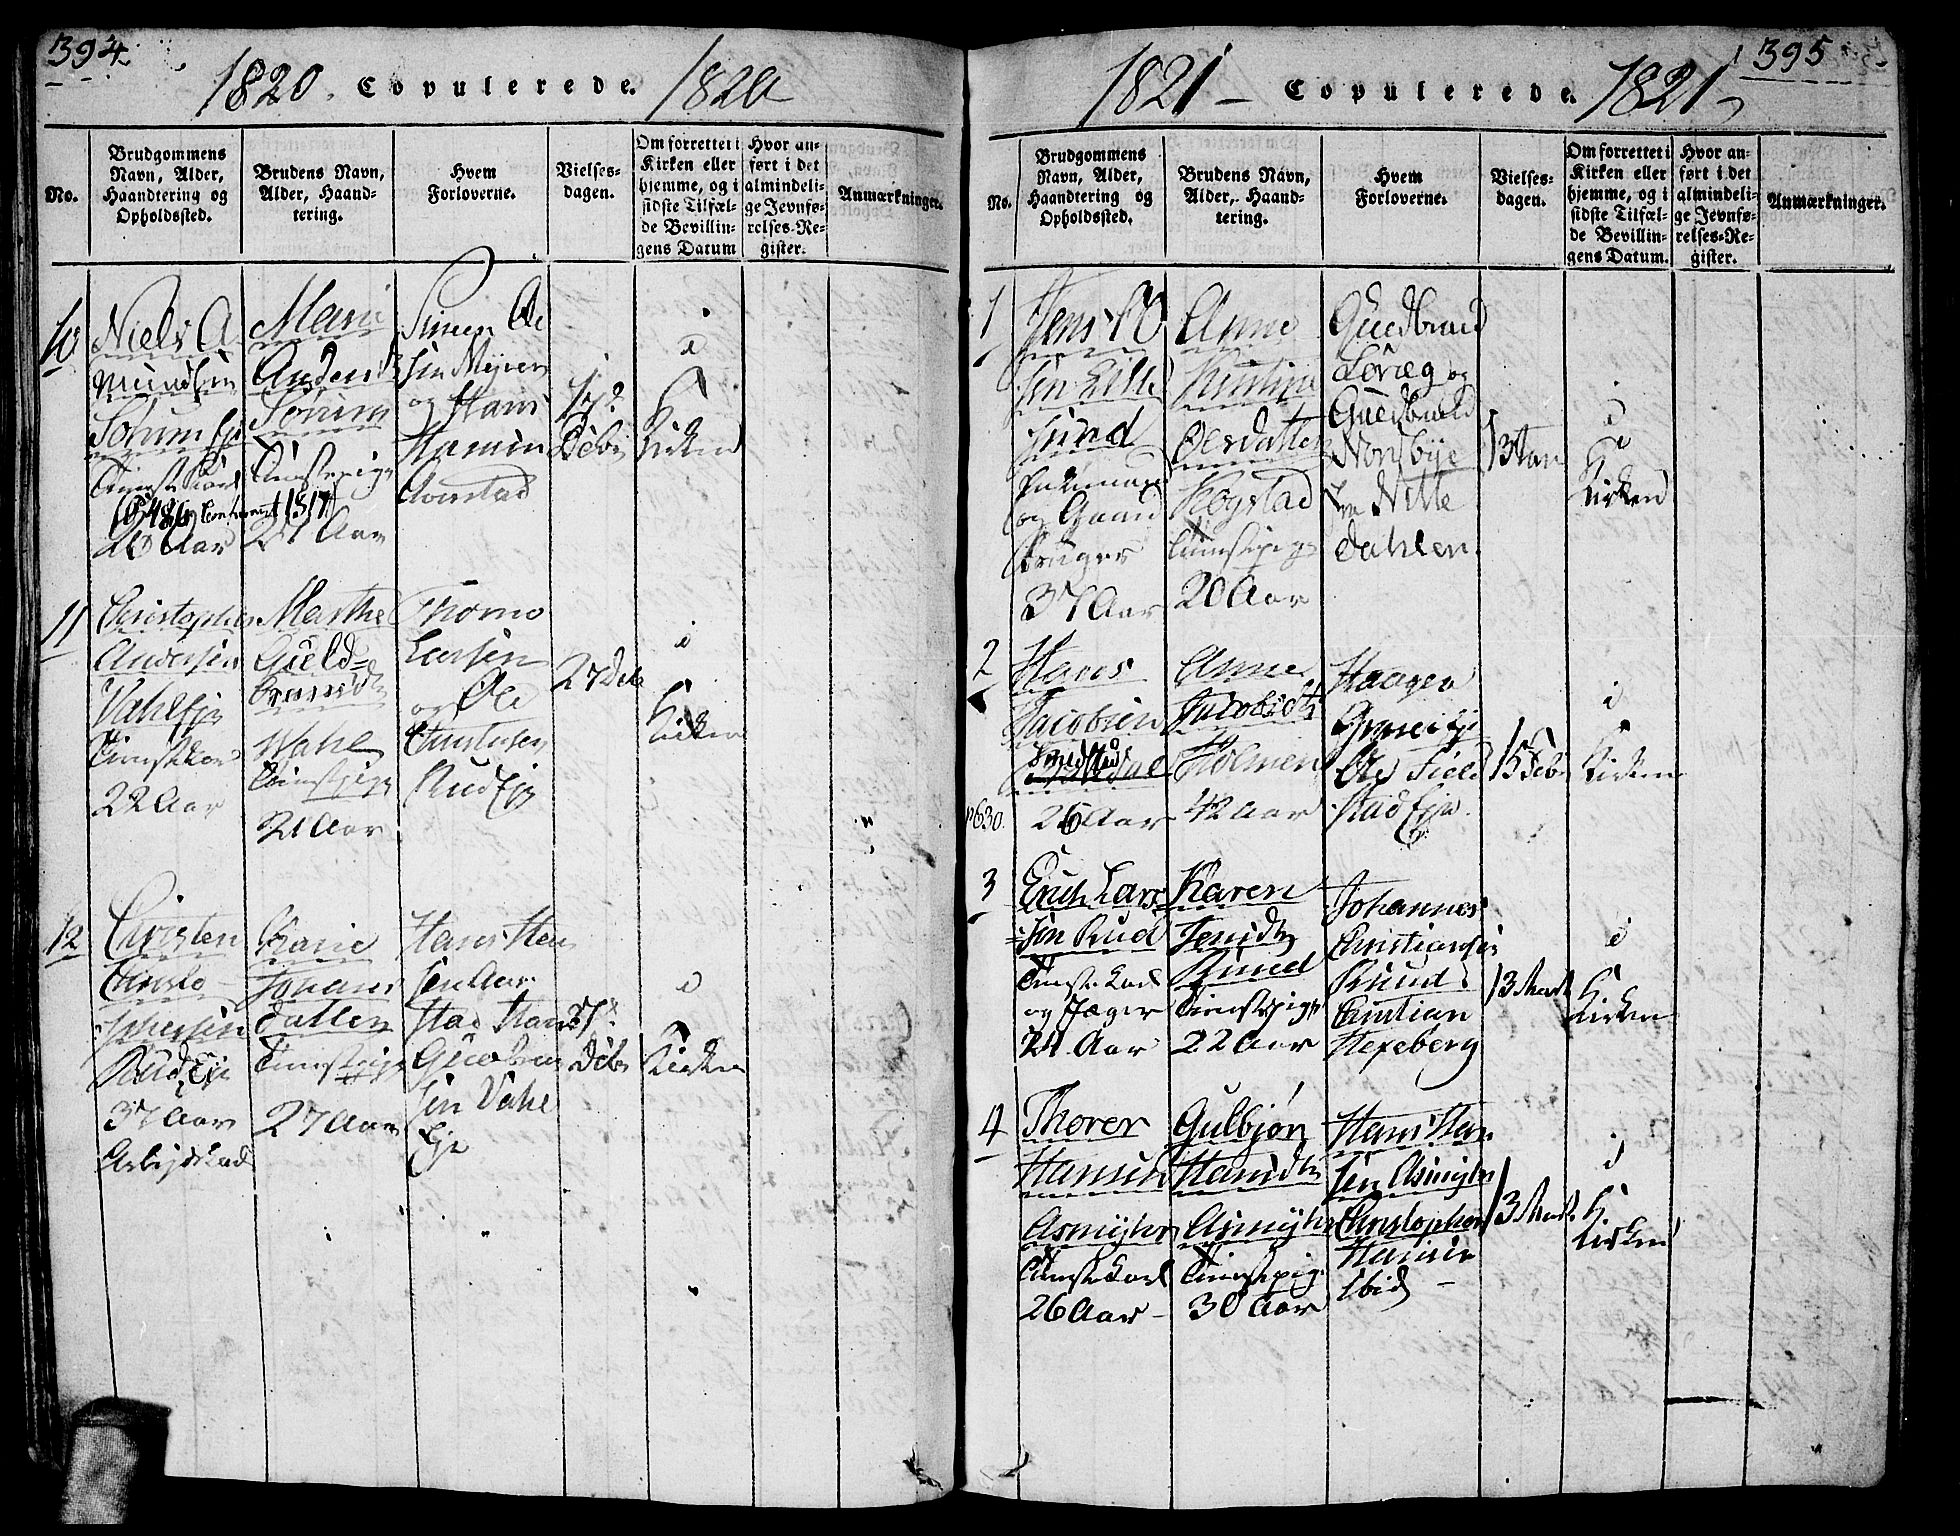 394.
1820. Copulerede. 1820
No.
Brudgommens Navn, Alder, Haandtering og Opholdssted.
Brudens Navn, Alder, Haandtering.
Hvem Forloverne.
Vielsesdagen.
Om forrettet i Kirken eller hjemme, og i sidste Tilfælde Bevillingens Datum
Hvor anført i det almindelige Jevnførelses-Register.
Anmærkninger.
10
Niels A
mundsen
Sorum Eje
26 Aar
Marie
Anders
Sorum
Tienstepige
27 Aar
Simen Ole
sen Myren
og Hans
Aamstad
Debr
i
Kirken
11
Christopher
Andersen
Vahl Eje
22 Aar
Marthe
Guld=
brandsdtr
Wahl
Tienstepige
21 Aar.
Thomo
Larsen
og Ole
Christensen
Rud Eje
27 Deb
i
Kirken
12
Christen
Christo-
phersen
Rud Eje
37 Aar
Arbejdskarl
Marie
Johans
datter
Tienstepige
27 Aar
Hans Han
sen Aar
stad Hans
sen Vahl
Eje
27
Debr
i
Kirken
395
1821 - Copulerede. 1821
No.
Brudgommens Navn, Alder, Haandtering og Opholdssted.
Brudens Navn, Alder, Haandtering.
Hvem Forloverne.
Vielsesdagen.
Om forrettet i Kirken eller hjemme, og i sidste Tilfælde Bevillingens Datum.
Hvor anført i det almindelige Jevnførelses-Register.
Anmærkninger.
1
Jens Ol
sen Lille
sund
og Gaard
bruger
37 Aar
Anne
Kirstine
Olesdatter
Rogstad
Tienstepige
20 Aar
Guldbrand
og
Guldbrand
Nordbye
Nitte
dahlen.
13 Jan
i
Kirken
2
Hans
Jacobsen
26 Aar
p 630.
Anne
Jacobsdtr
Holmen
42 Aar
Haagen
Ole Field
stad Eje.
15 Feb
i
Kirken
3
Erich Lars
=sen Rud
Tienstekarl
og Jæger
24 Aar
Karen
Jensdtr
Ruud
Tienstepige
22 Aar
Johannes
Christiansen
Ruud
Christian
Hexeberg
13 Mart
i
Kirken
4
Thorer
Hansen
Asmyhr
Tienstekarl
26 Aar -
Gulbjør
Hansdtr
Asmyhr
Tienstepige
30 Aar
Hans Han
sen Asmyhr
Christopher
Hansen
ibid -
13 Mart.
i
Kirken